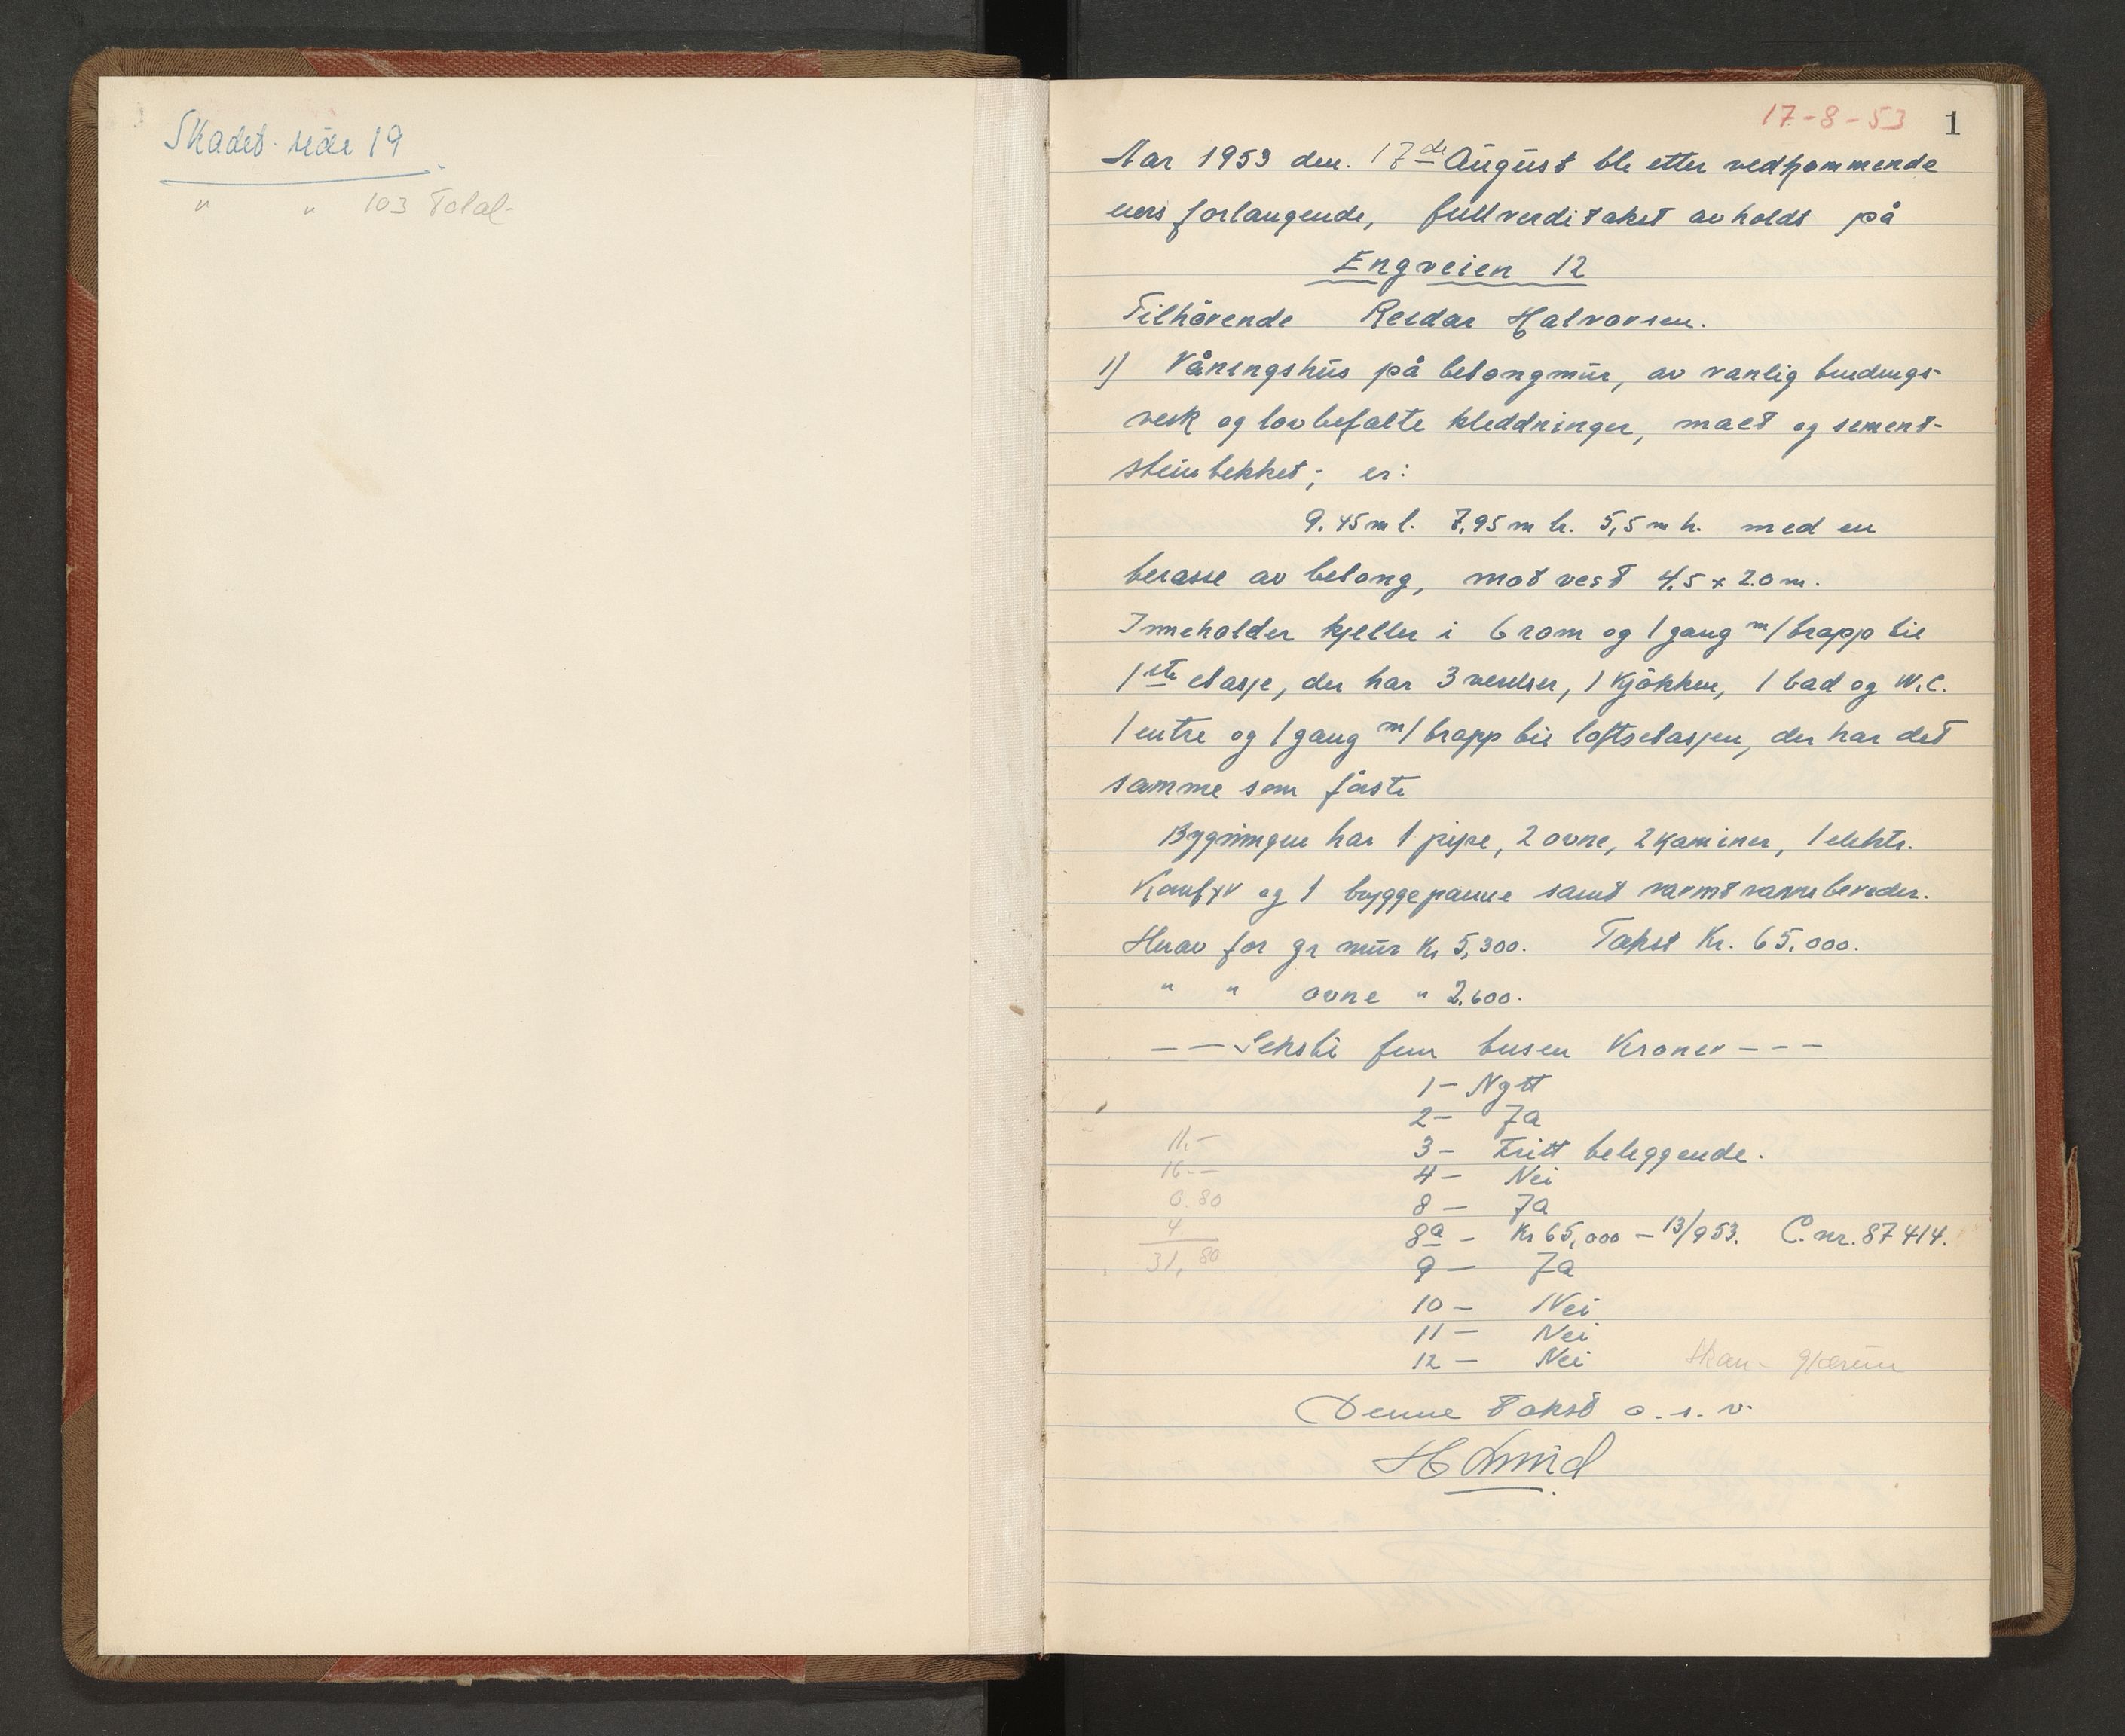 Skadet side 19
" " 103 Total-
17-8-53 1
Aar 1953 den. 17de August ble etter vedkommende
eiers forlangende, fullverditakst avholdt på
Engveien 12
Tilhörende Reidar Halvorsen.
1) Våningshus på betongmur, av vanlig bindings-
verk og lovbefalte kleddninger, malt og sement-
steintekket; er:
9.45 m l. 7,95 m b. 5,5 m h. med en
terasse av betong, mot vest 4.5 x 2.0 m.
Inneholder kjeller i 6 rom og 1 gang m/trapp til
1ste etasje, der har 3 verelser, 1 Kjökken, 1 bad og W.C.
1 entre og 1 gang m/trapp til loftsetasjen, der har det
samme som förste
Bygningen har 1 pipe, 2 ovne, 2 Kaminer, 1 elektr.
Komfyr og 1 bryggepanne samt varmtvannsbereder.
Herav for gr mur Kr 5,300. Takst Kr. 65.000.
" " ovne " 2.600.
— — Seksti fem tusen Kroner - - -
1 - Nytt
2 - Ja
11.-
3 - Fritt beliggende.
16.-
4 - Nei
0.80
8 - Ja
4.
8a - Kr 65,000 - 13/953. C. nr. 87414.
31,80
9 - Ja
10 - Nei
11 - Nei
12 - Nei
Denne Takst o.s.v.
H Lund